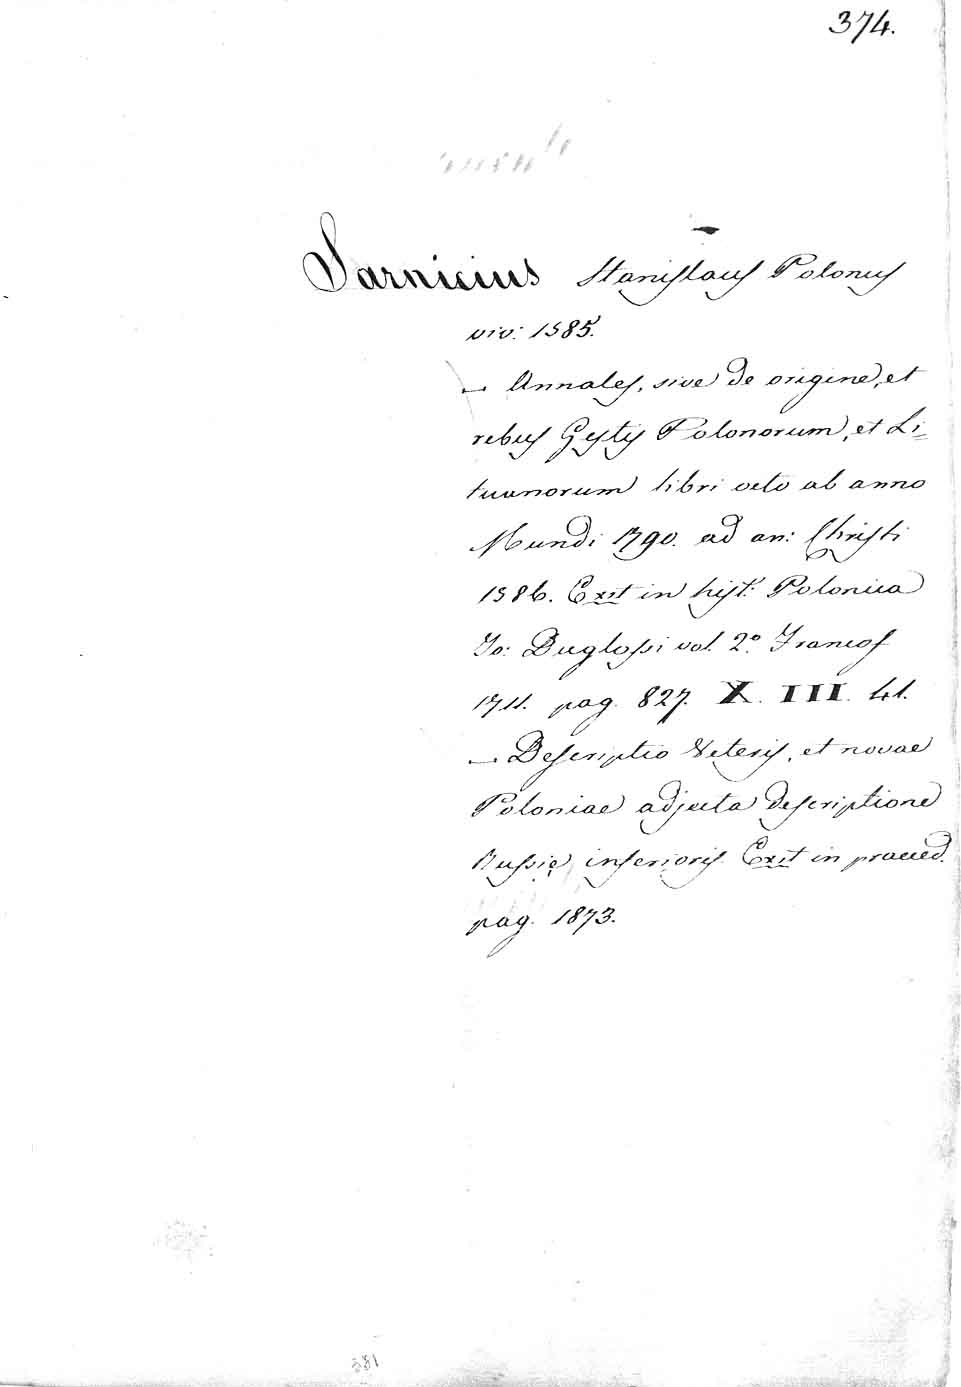 374.
Sarnicius Stanislaus Polonus
viv: 1585.
— Annales, sive de origine, et
rebus Gestis Polonorum, et Li=
tuanorum libri octo ab anno
Mundi 1790. ad an: Christi
1586. Exit in hist: Polonica
Jo: Duglossi vol. 2º. Francof
1711. pag. 827. X. III. 41.
— Descriptio Veteris, et novae
Poloniae adjecta descriptione
Russie inferioris Exit in praeced.
pag. 1873.